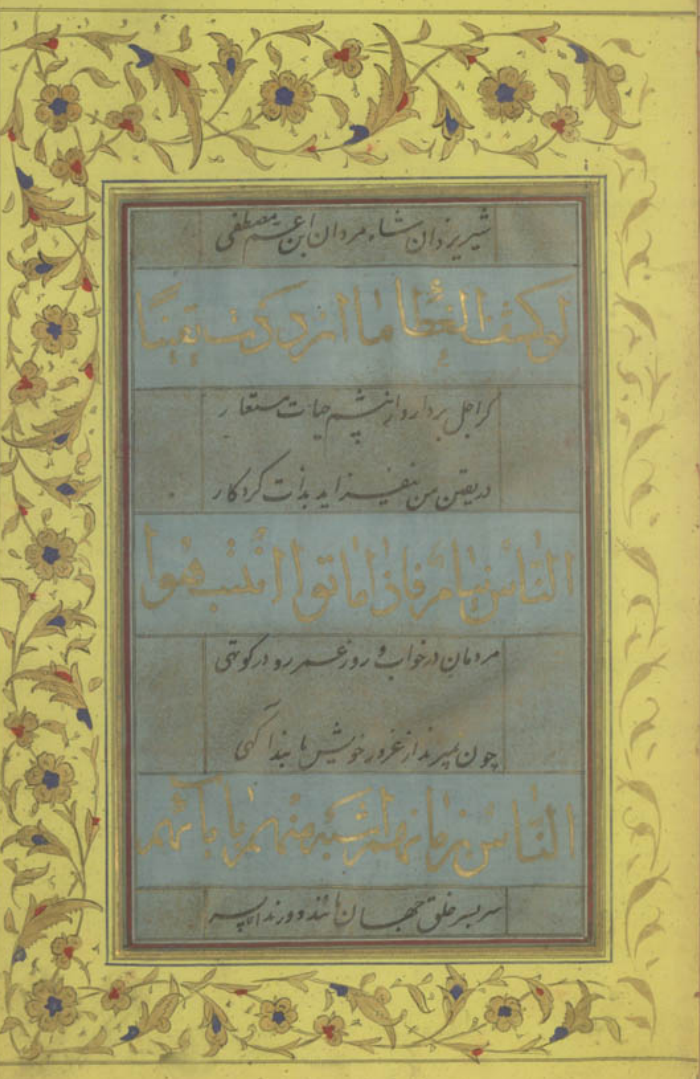 شیر یزدان شاه مردان ابن عم مصطفی
لو کشف الغطاء ما ازددت یقینا
گر اجل بردارد از چشم حیات مستعار
در یقین من نیفزاید بذات کردکار
الناس نیام فاذا ماتوا انتبهوا
مردمان در خواب و روز عمر رو در کوتهی
چون بمیرند از غرور خویش یابند آگهی
الناس بزمانهم اشبه منهم بآبائهم
سر بسر خلق جهان مانند دورند ای پسر